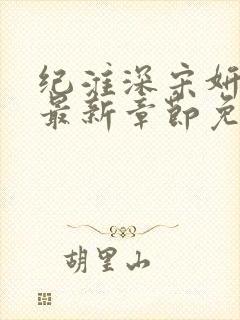 纪淮深宋妍
最新章节免
胡里山